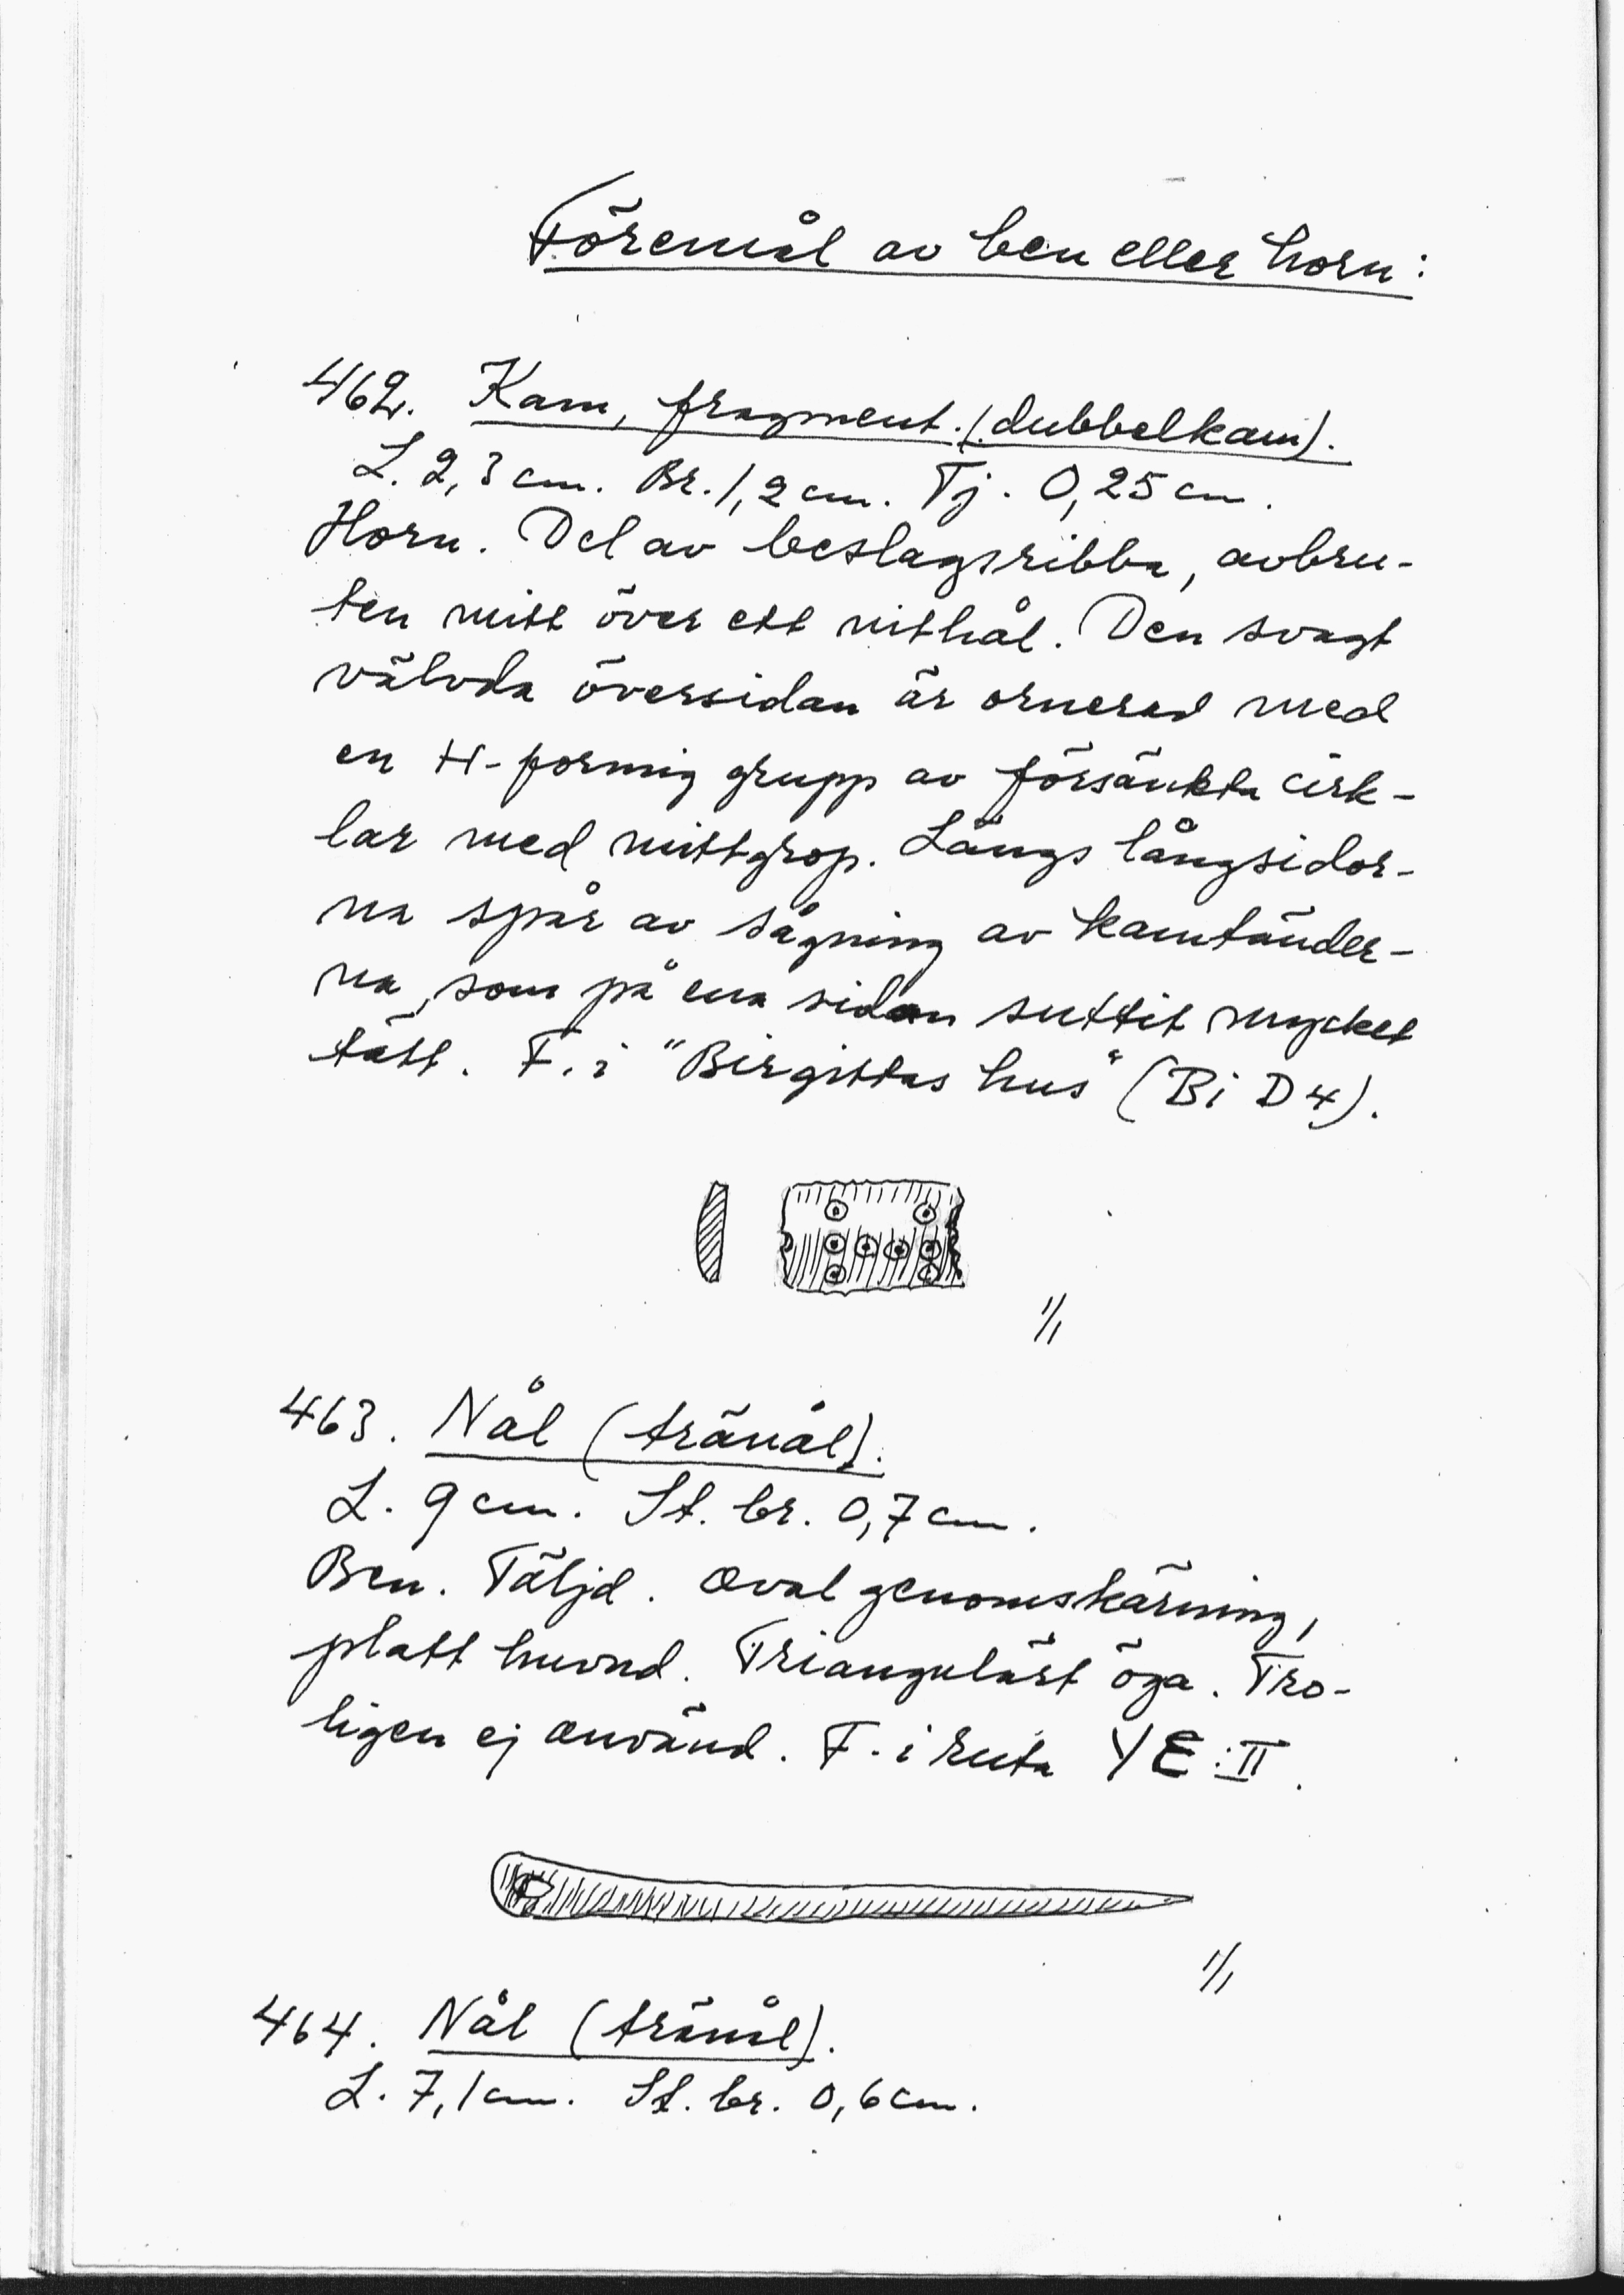 Föremål av ben eller horn:
462. Kam, fragment. (dubbelkam).
L. 2,3 cm. Br. 1,2 cm. Tj. 0,25 cm.
Horn. Del av beslagsribba, avbru-
ten mitt över ett nithål. Den svagt
välvda översidan är ornerad med
en H-formig grupp av försänkta cirk-
lar med mittgrop. Längs långsidor-
na spår av sågning av kamtänder-
na, som på ena sidan suttit mycket
tätt. F. i "Birgittas hus" (Bi D4).
1/1
463. Nål (tränål).
L. 9 cm. St. br. 0,7 cm.
Ben. Täljd. Oval genomskärning,
platt huvud. Triangulärt öga. Tro-
ligen ej använd. F. i ruta YE:II.
1/1
464. Nål (tränål).
L. 7,1 cm. St. br. 0,6 cm.